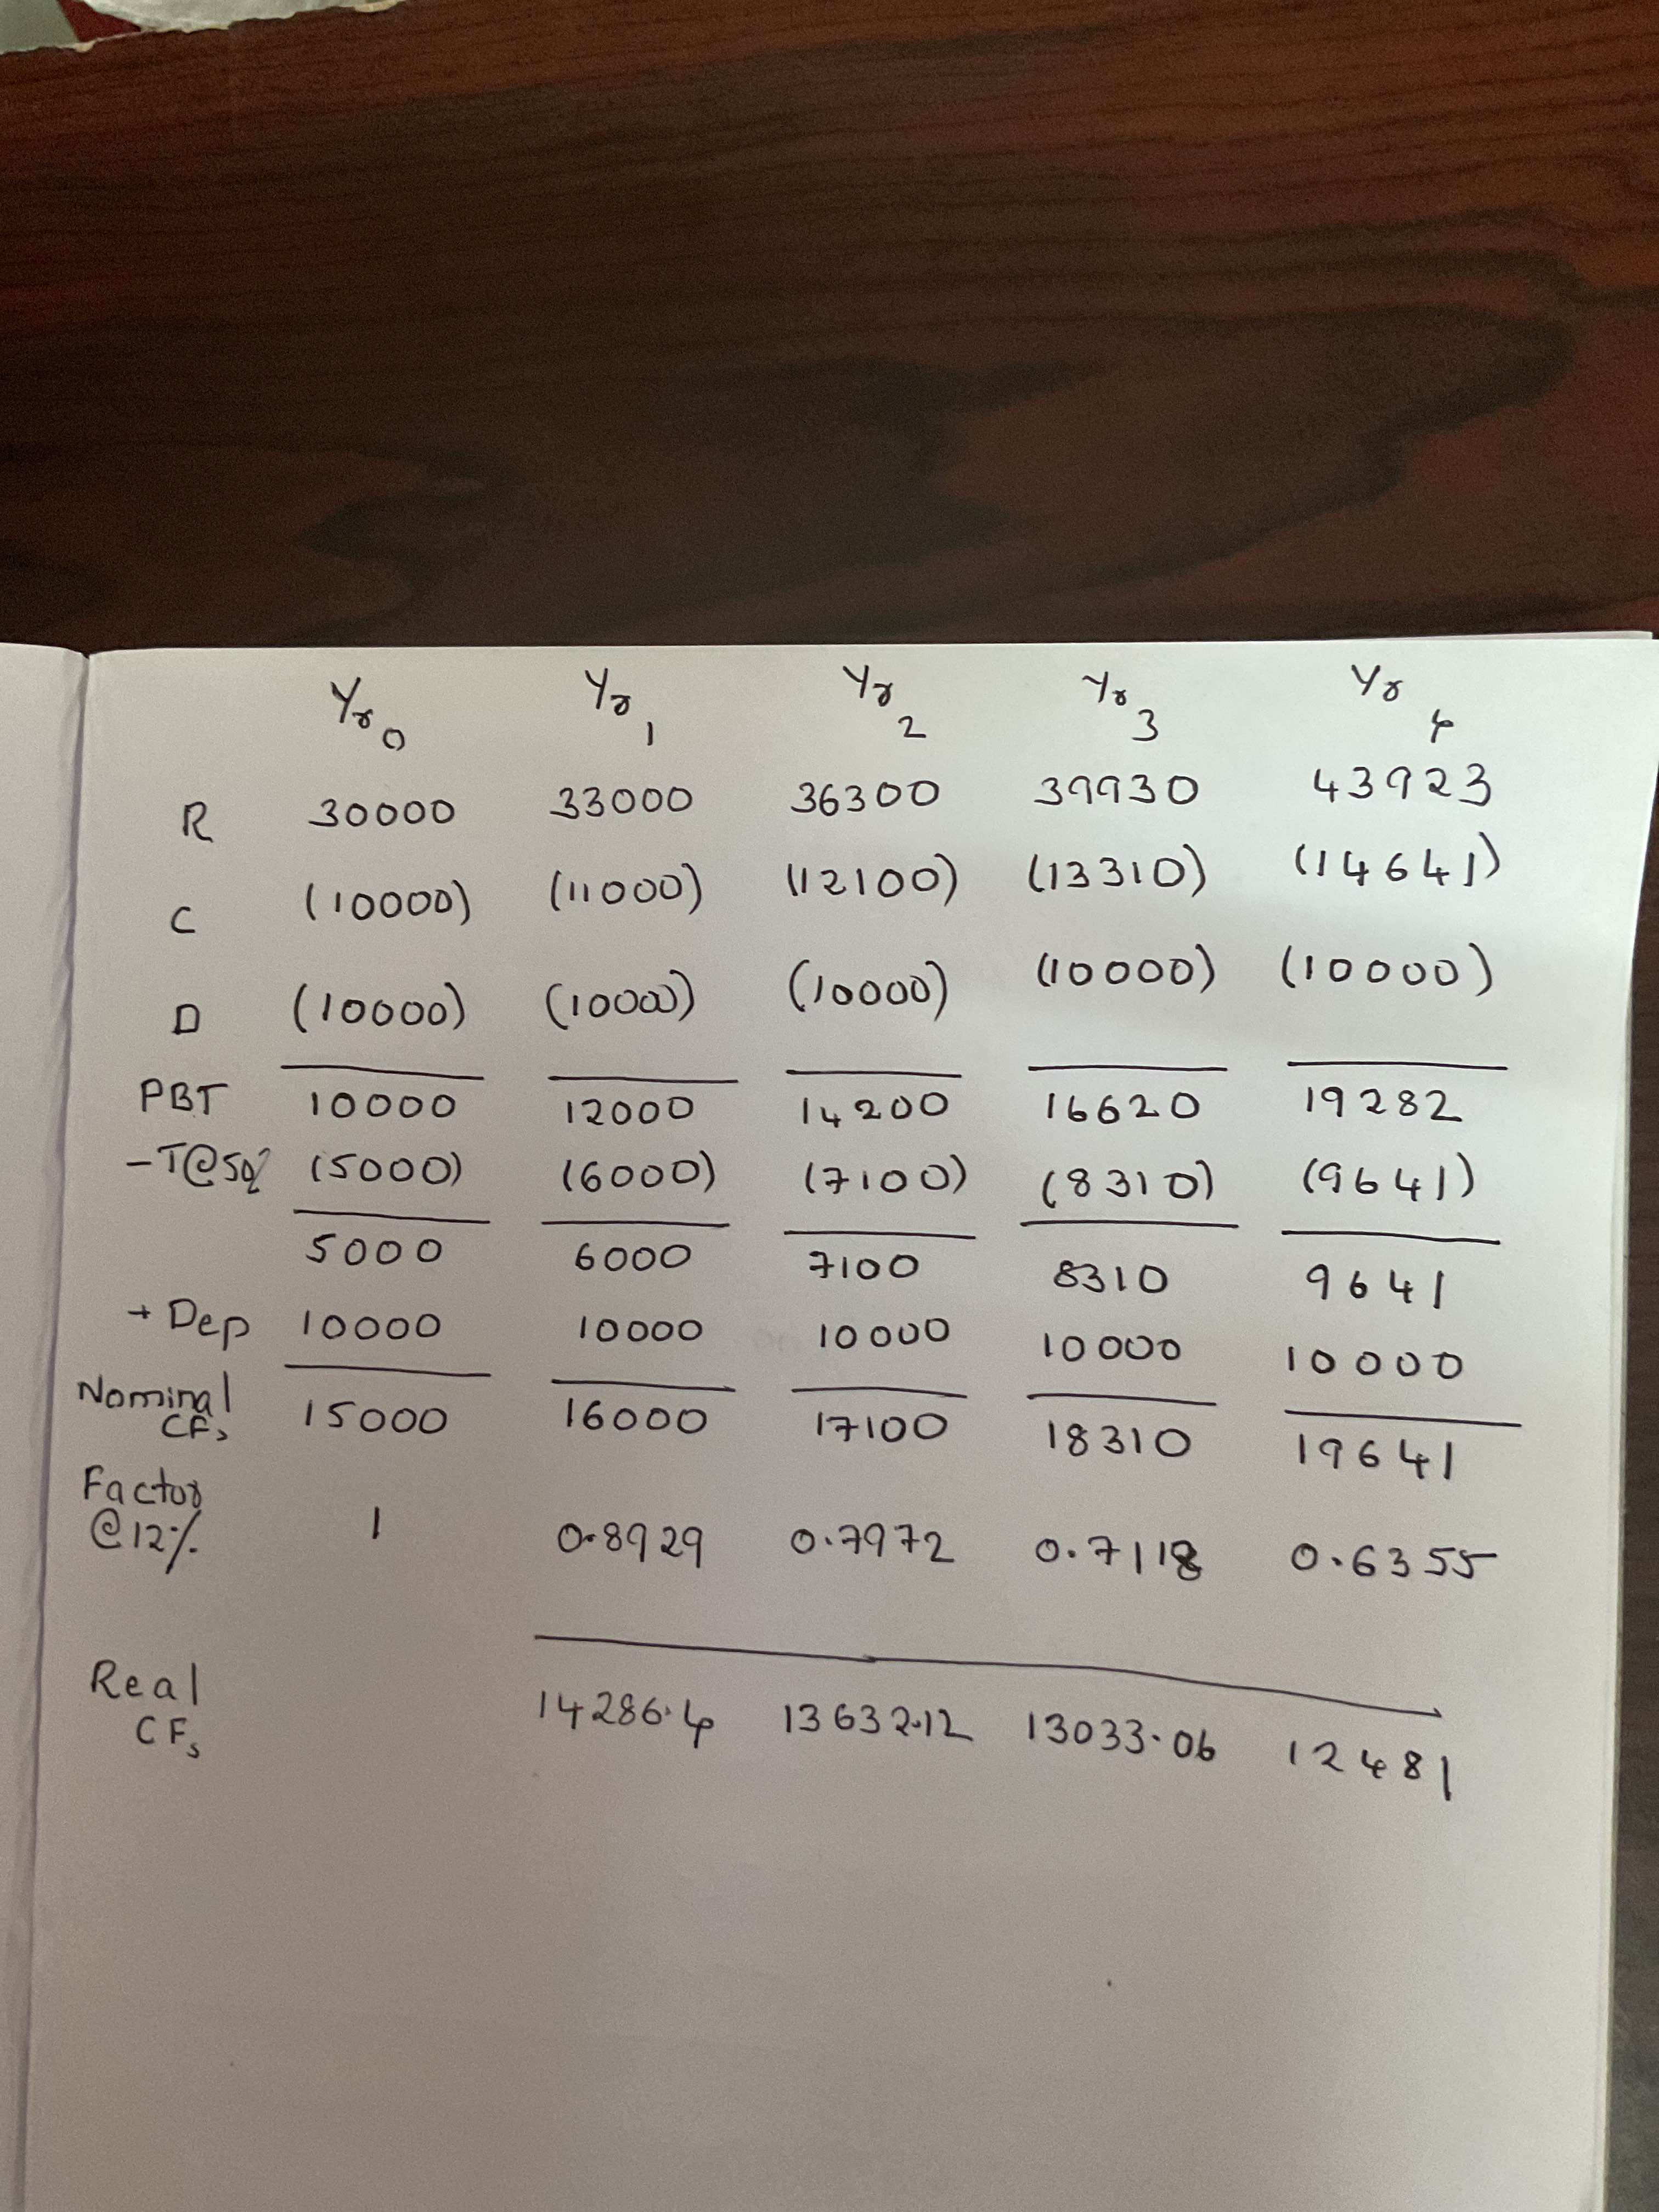 Yr0 Yr1 Yr2 Yr3 Yr4
R 30000 33000 36300 39930 43923
C (10000) (11000) (12100) (13310) (14641)
D (10000) (10000) (10000) (10000) (10000)
PBT 10000 12000 14200 16620 19282
-T@50% (5000) (6000) (7100) (8310) (9641)
5000 6000 7100 8310 9641
+ Dep 10000 10000 10000 10000 10000
Nominal CFs 15000 16000 17100 18310 19641
Factor @12% 1 0.8929 0.7972 0.7118 0.6355
Real CFs 14286.4 13632.12 13033.06 12481